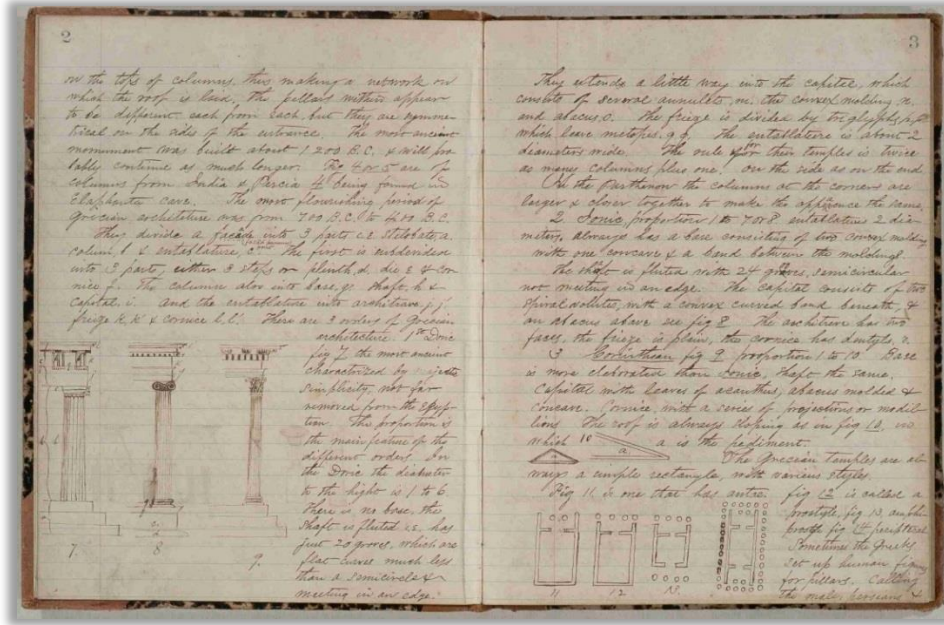 2
on the tops of columns, thus making a network on
which the roof is laid, the pillars within appear
to be different each from each, but they are symme-
trical on the sides of the entrance. The most ancient
monument was built about 1200 B.C. & will pro-
bably continue as much longer. Fig 4 or 5 are of
columns from India & Percia 4 being formed in
Elaphanta cave. The most flourishing period of
Grecian architeture was from 700 B.C. to 400 B.C.
They divide a façade into 3 parts i.e stilobate, a.
column, b & entablature, c. The first is subdivided
into 3 parts, either 3 steps or plinth, d, die, e & cor-
nice f. The columns also into base, g. shaft, h &
capital, i. And the entablature into architrave, j, j'
frieze k, k' & cornice l, l'. There are 3 orders of Grecian
architecture 1st Doric
fig 7 the most ancient
characterized by majestic
simplicity, not far
removed from the Egyp-
tian. The proportion is
the main feature of the
different orders. In
the Doric the diameter
to the hight is 1 to 6.
There is no base, the
shaft is fluted i.e. has
just 20 groves, which are
flat curves much less
than a semicircle &
meeting in an edge.
7.
8
9.
3
They extends a little way into the capital, which
consists of several annulets, m. the convex molding n.
and abacus, o. The frieze is divided by triglyphs, p, p
which leave metopes. q q. The entablature is about 2
diameters wide. The rule for their temples is twice
as many columns plus one, on the side as on the end.
On the Parthenon the columns at the corners are
larger & closer together to make the apperance the same.
2 Ionic, proportion 1 to 7 or 8 entablature 2 dia-
meters, always has a base consisting of two convex molding
with one concave & a band between the moldings.
The shaft is fluted with 24 groves, semicircular
not meeting in an edge. The capital consists of two
spiral volutes, with a convex curved band beneath, &
an abacus above see fig 8. The architrave has two
faces, the frieze is plain, the cornice has dentyls, r.
3 Corinthean fig 9 proportion 1 to 10. Base
is more elaborated than ionic, shaft the same,
capital with leaves of acanthus, abacus molded &
concave. Cornice, with a series of projections or modil-
lions. The roof is always sloping as in fig 10, in
which 10 a is the pediment.
a
The Grecian temples are al-
ways a simple rectangle, with various styles.
Fig 11 is one that has antae. fig 12 is called a
prostyle, fig 13, amphi-
prostyle fig 14 peripteral
Sometimes the Greeks
set up human figures
for pillars. Calling
the males persians &
11
12
13.